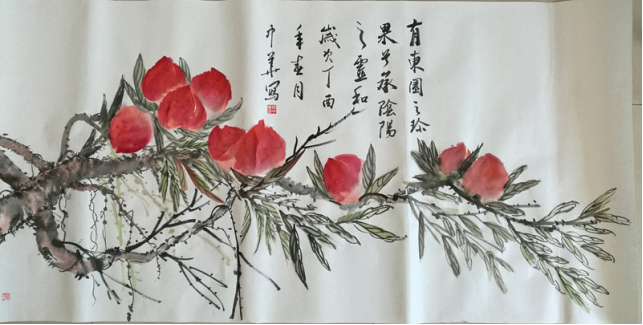 有東園之珍
果兮承陰陽
之靈和
歲次丁酉
年春月
華寫